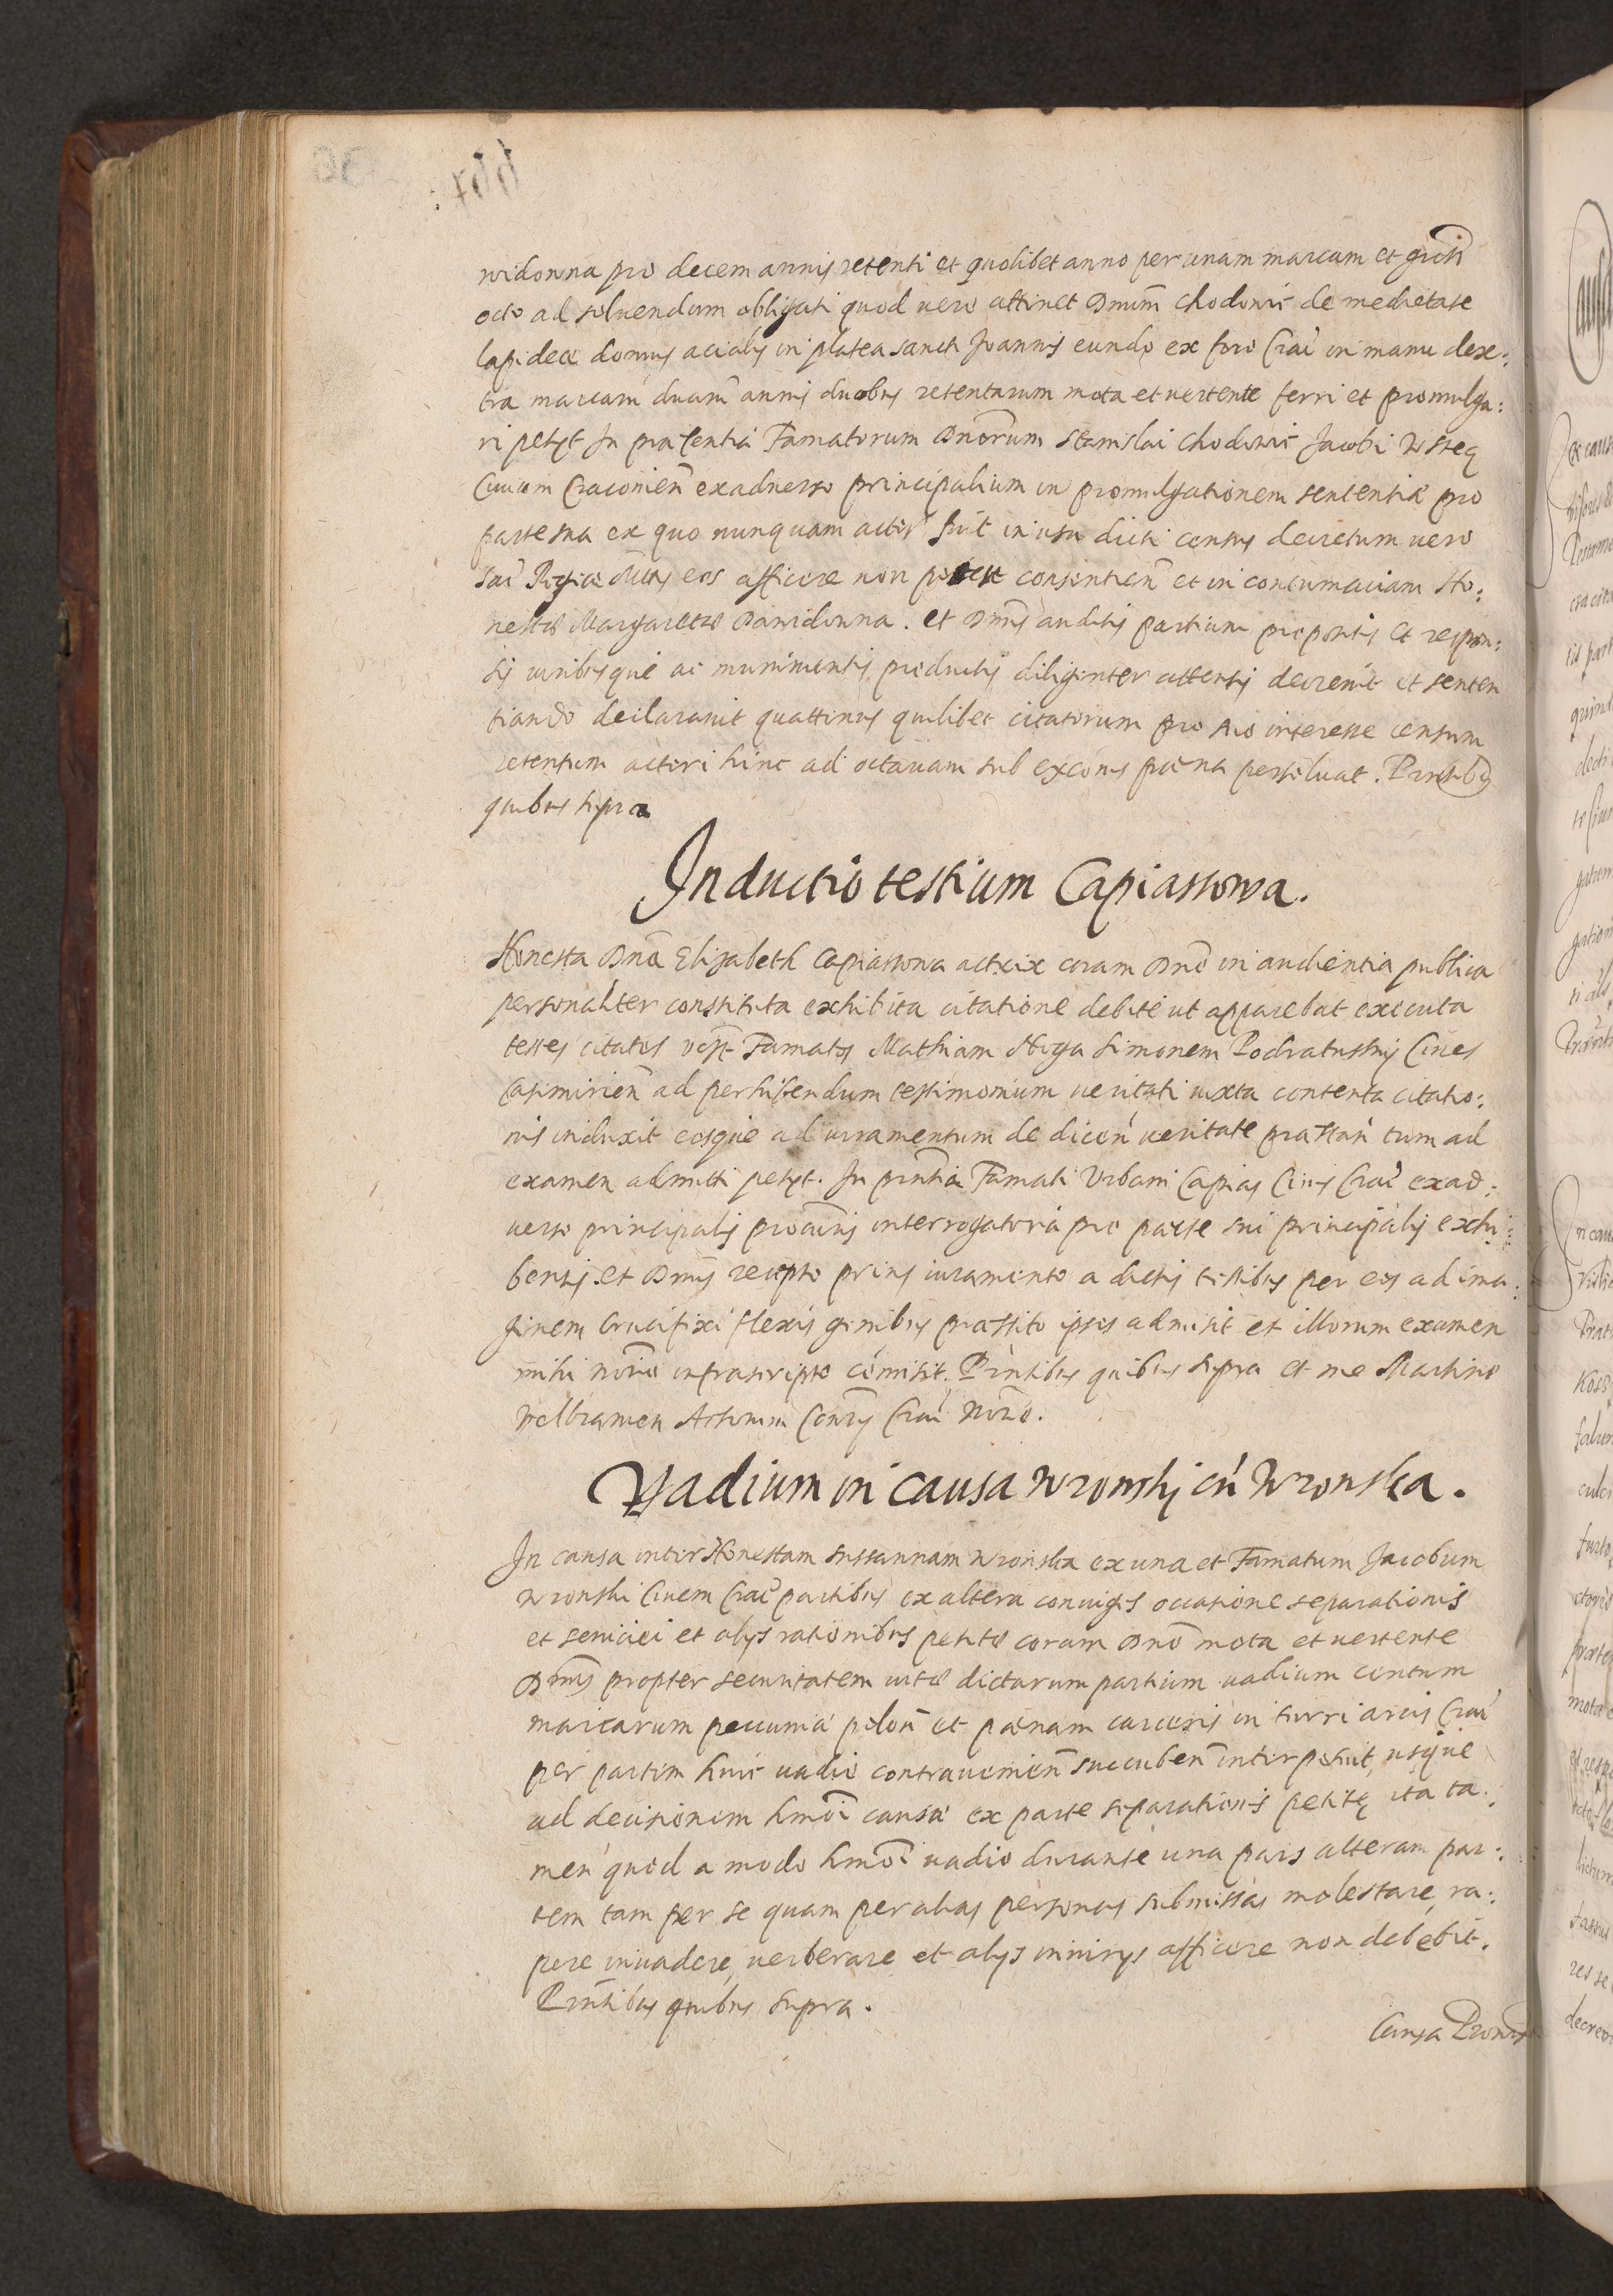 widonna pro decem annis retenti et quolibet anno per unam marcam et grossi
octo ad soluendum obligati quod uero attinet Dnum Chodowic de medietate
lapideae domus acialis in platea sancti Joannis eundo ex foro Crac in manu dex:
tra marcarum duarum annis duobus retentarum mota et uertente ferri et promulga:
ri petyt In praesentia Famatorum Dnorum Stanislai Chodowic Jacobi
Ciuium Cracouien exaduerso principalium in promulgationem sententiae pro
parte sua ex quo nunquam actor fuit in usu dicti census decretum uero
Sac Regiae Mtis eos afficere non potest consentien et in contumaciam Ho:
nestae Margaretae Dawidowna. et Dnus auditis partium propositis et respon:
sis iuribusque ac munimentis productis diligenter attentis decreuit et senten
tiando declarauit quattinus quilibet citatorum pro suo interesse censum
retentum actori hinc ad octauam sub excoms paena persoluat. Pntibus
quibus supra
Inductio testium Capiassowa.
Honesta Dna Elizabeth Capiassowa actrix coram Dno in audientia publica
personaliter constituta exhibita citatione debite ut apparebat executa
testes citatos vdst Famatos Mathiam Noga Simonem Podratusski Ciues
Casimirien ad perhibendum testimonium ueritati iuxta contenta citatio:
nis induxit eosque ad iuramentum de dicen ueritate praestan tum ad
examen admitti petyt. In pntia Famati Vrbani Capias Ciuis Crac exad:
uerso principalis procuris interrogatoria pro parte sui principalis exhi:
bentis. et Dnus recepto prius iuramento a dictis testibus per eos ad ima:
ginem Crucifixi flexis genibus praestito ipsos admisit et illorum examen
mihi norio infrascripto comisit. Pntibus quibus supra et me Martino
Wolbramen Actorum Conrys Crac Norio.
Vadium in causa Wronski cu Wronska.
In causa inter Honestam Sussannam Wronska ex una et Famatum Jacobum
Wronski Ciuem Crac partibus ex altera coniuges occasione separationis
et seuiciei et alys rationibus petitae coram Dno mota et uertente
Dnus propter securitatem uitae dictarum partium uadium centum
marcarum pecuniae polon et paenam carceris in turri arcis Crac
per partem huic uadio contrauenien succuben interposuit, usque
ad decisionem hmoi causae ex parte separationis petitę ita ta:
men quod a modo hmoi uadio durante una pars alteram par:
tem tam per se quam per alias personas submissas molestare, ra:
pere inuadere, uerberare et alys iniurys afficere non debebit.
Pntibus quibus supra.
Causa